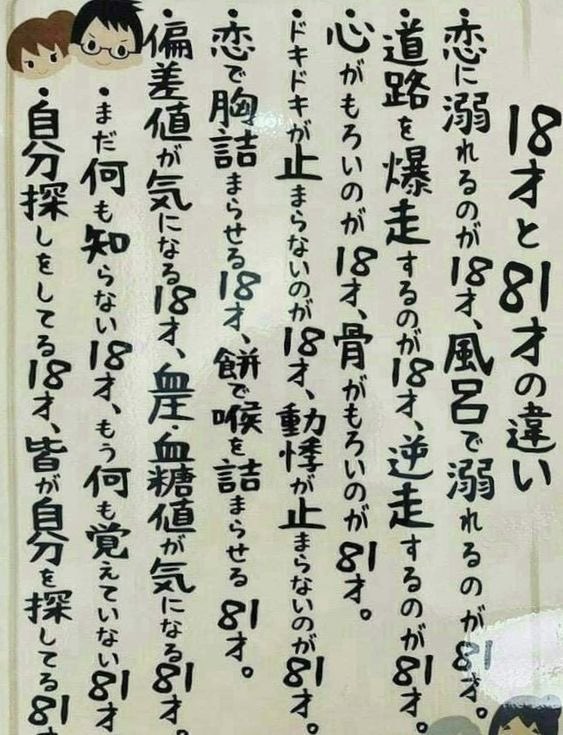 18才と81才の違い
・恋に溺れるのが18才、風呂で溺れるのが81才。
・道路を爆走するのが18才、逆走するのが81才。
・心がもろいのが18才、骨がもろいのが81才。
・ドキドキが止まらないのが18才、動悸が止まらないのが81才。
・恋で胸詰まらせる18才、餅で喉を詰まらせる81才。
・偏差値が気になる18才、血圧・血糖値が気になる81才。
・まだ何も知らない18才、もう何も覚えていない81才
・自分探しをしてる18才、皆が自分を探してる81才